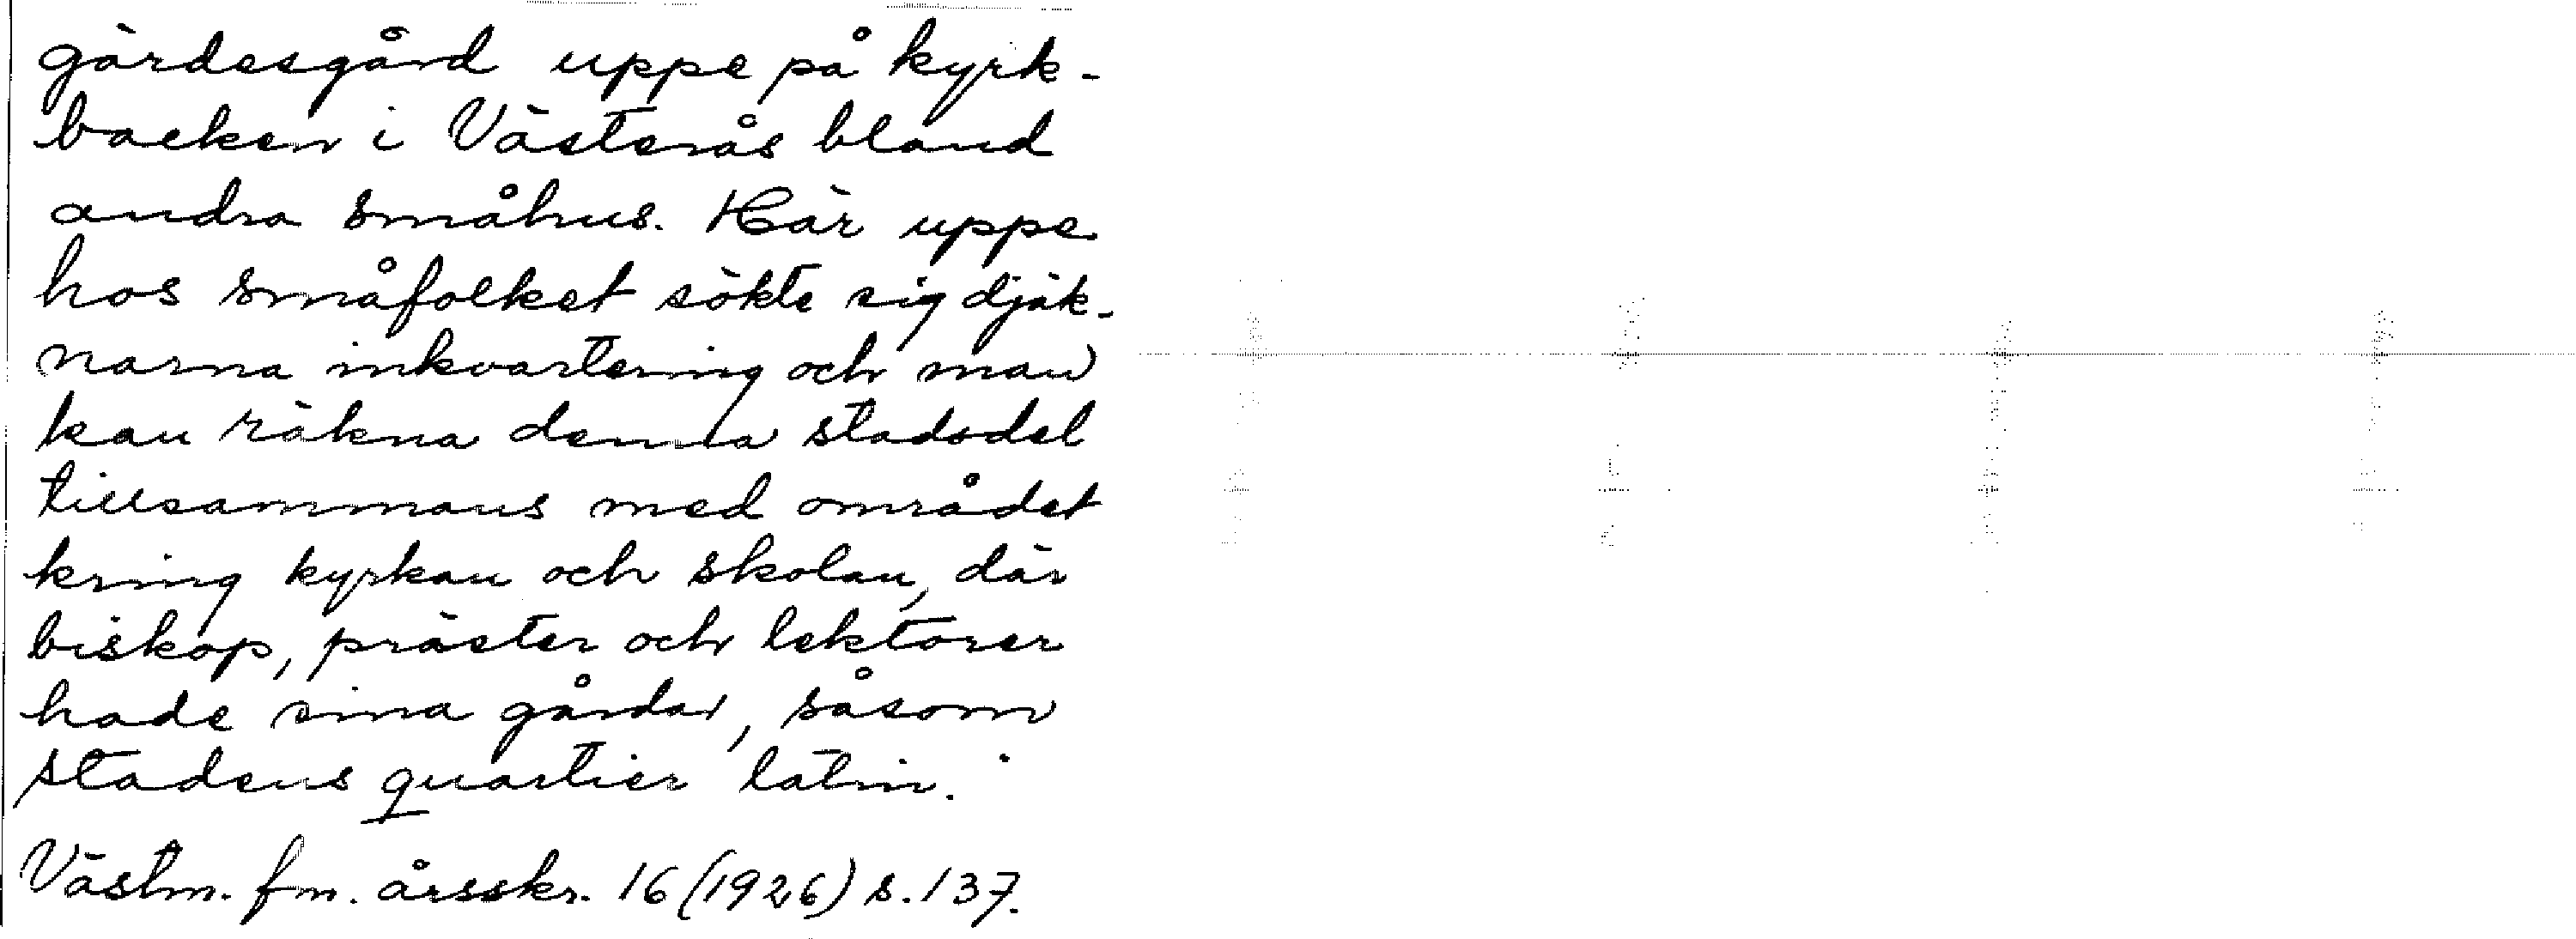 gärdesgård uppe på kyrk-
backen i Västerås bland
andra småhus. Här uppe
hos småfolket sökte sig djäk-
narna inkvartering och man
kan räkna denna stadsdel
tillsammans med området
kring kyrkan och skolan, där
biskop, präster och lektorer
hade sina gårdar, såsom
stadens quartier latin."
Västm. fm. årsskr. 16 (1926) s. 137.